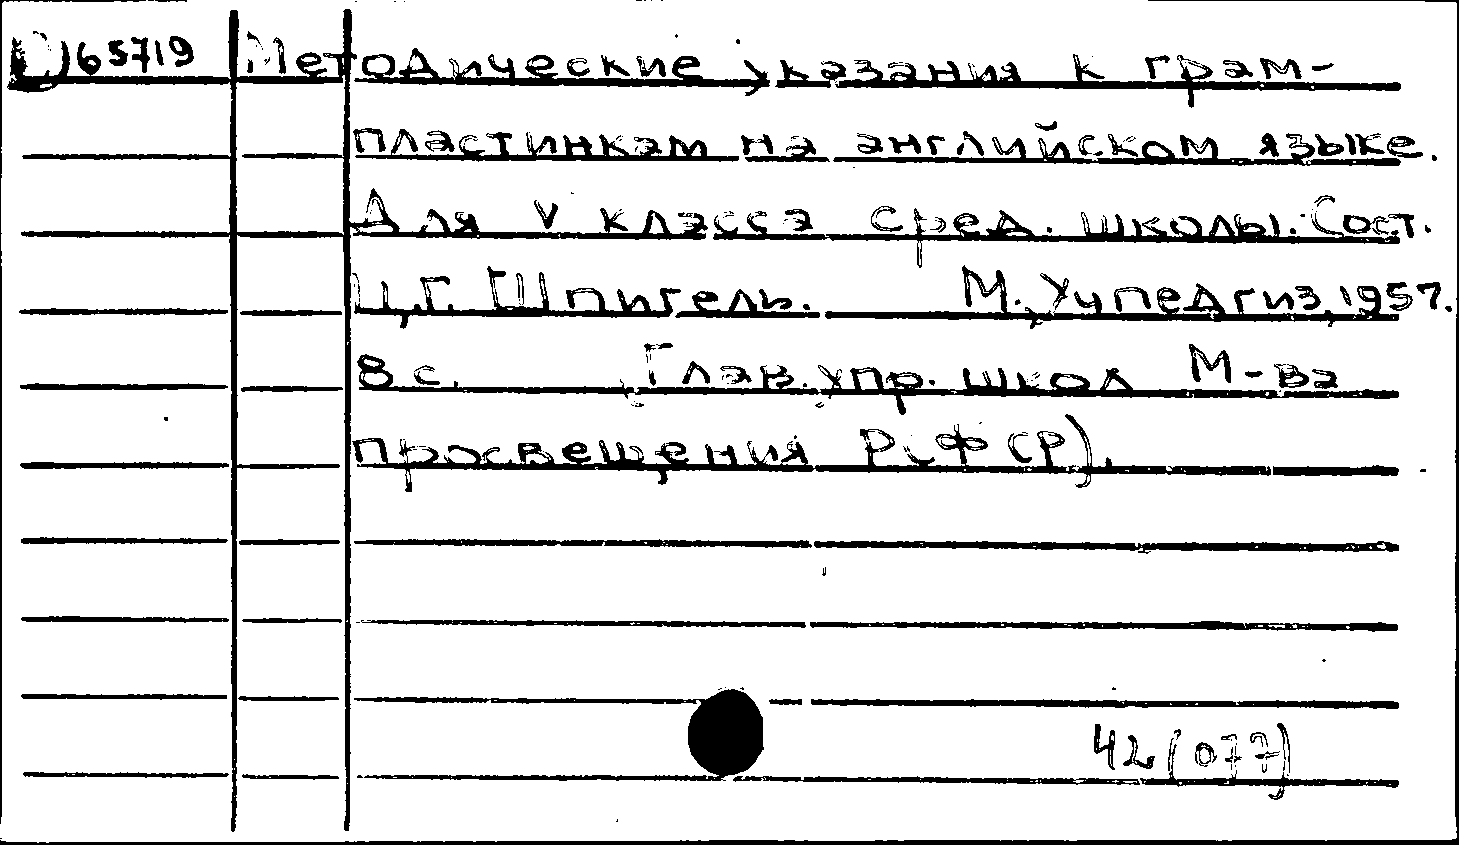 65719 Методические указания к грам-
пластинкам на английском языке.
Для V класса сред. школы. Сост.
Ц.Г. Шпигель. М., Учпедгиз, 1957.
8 с. (Глав. упр. школ М-ва
просвещения РСФСР).
42(077)